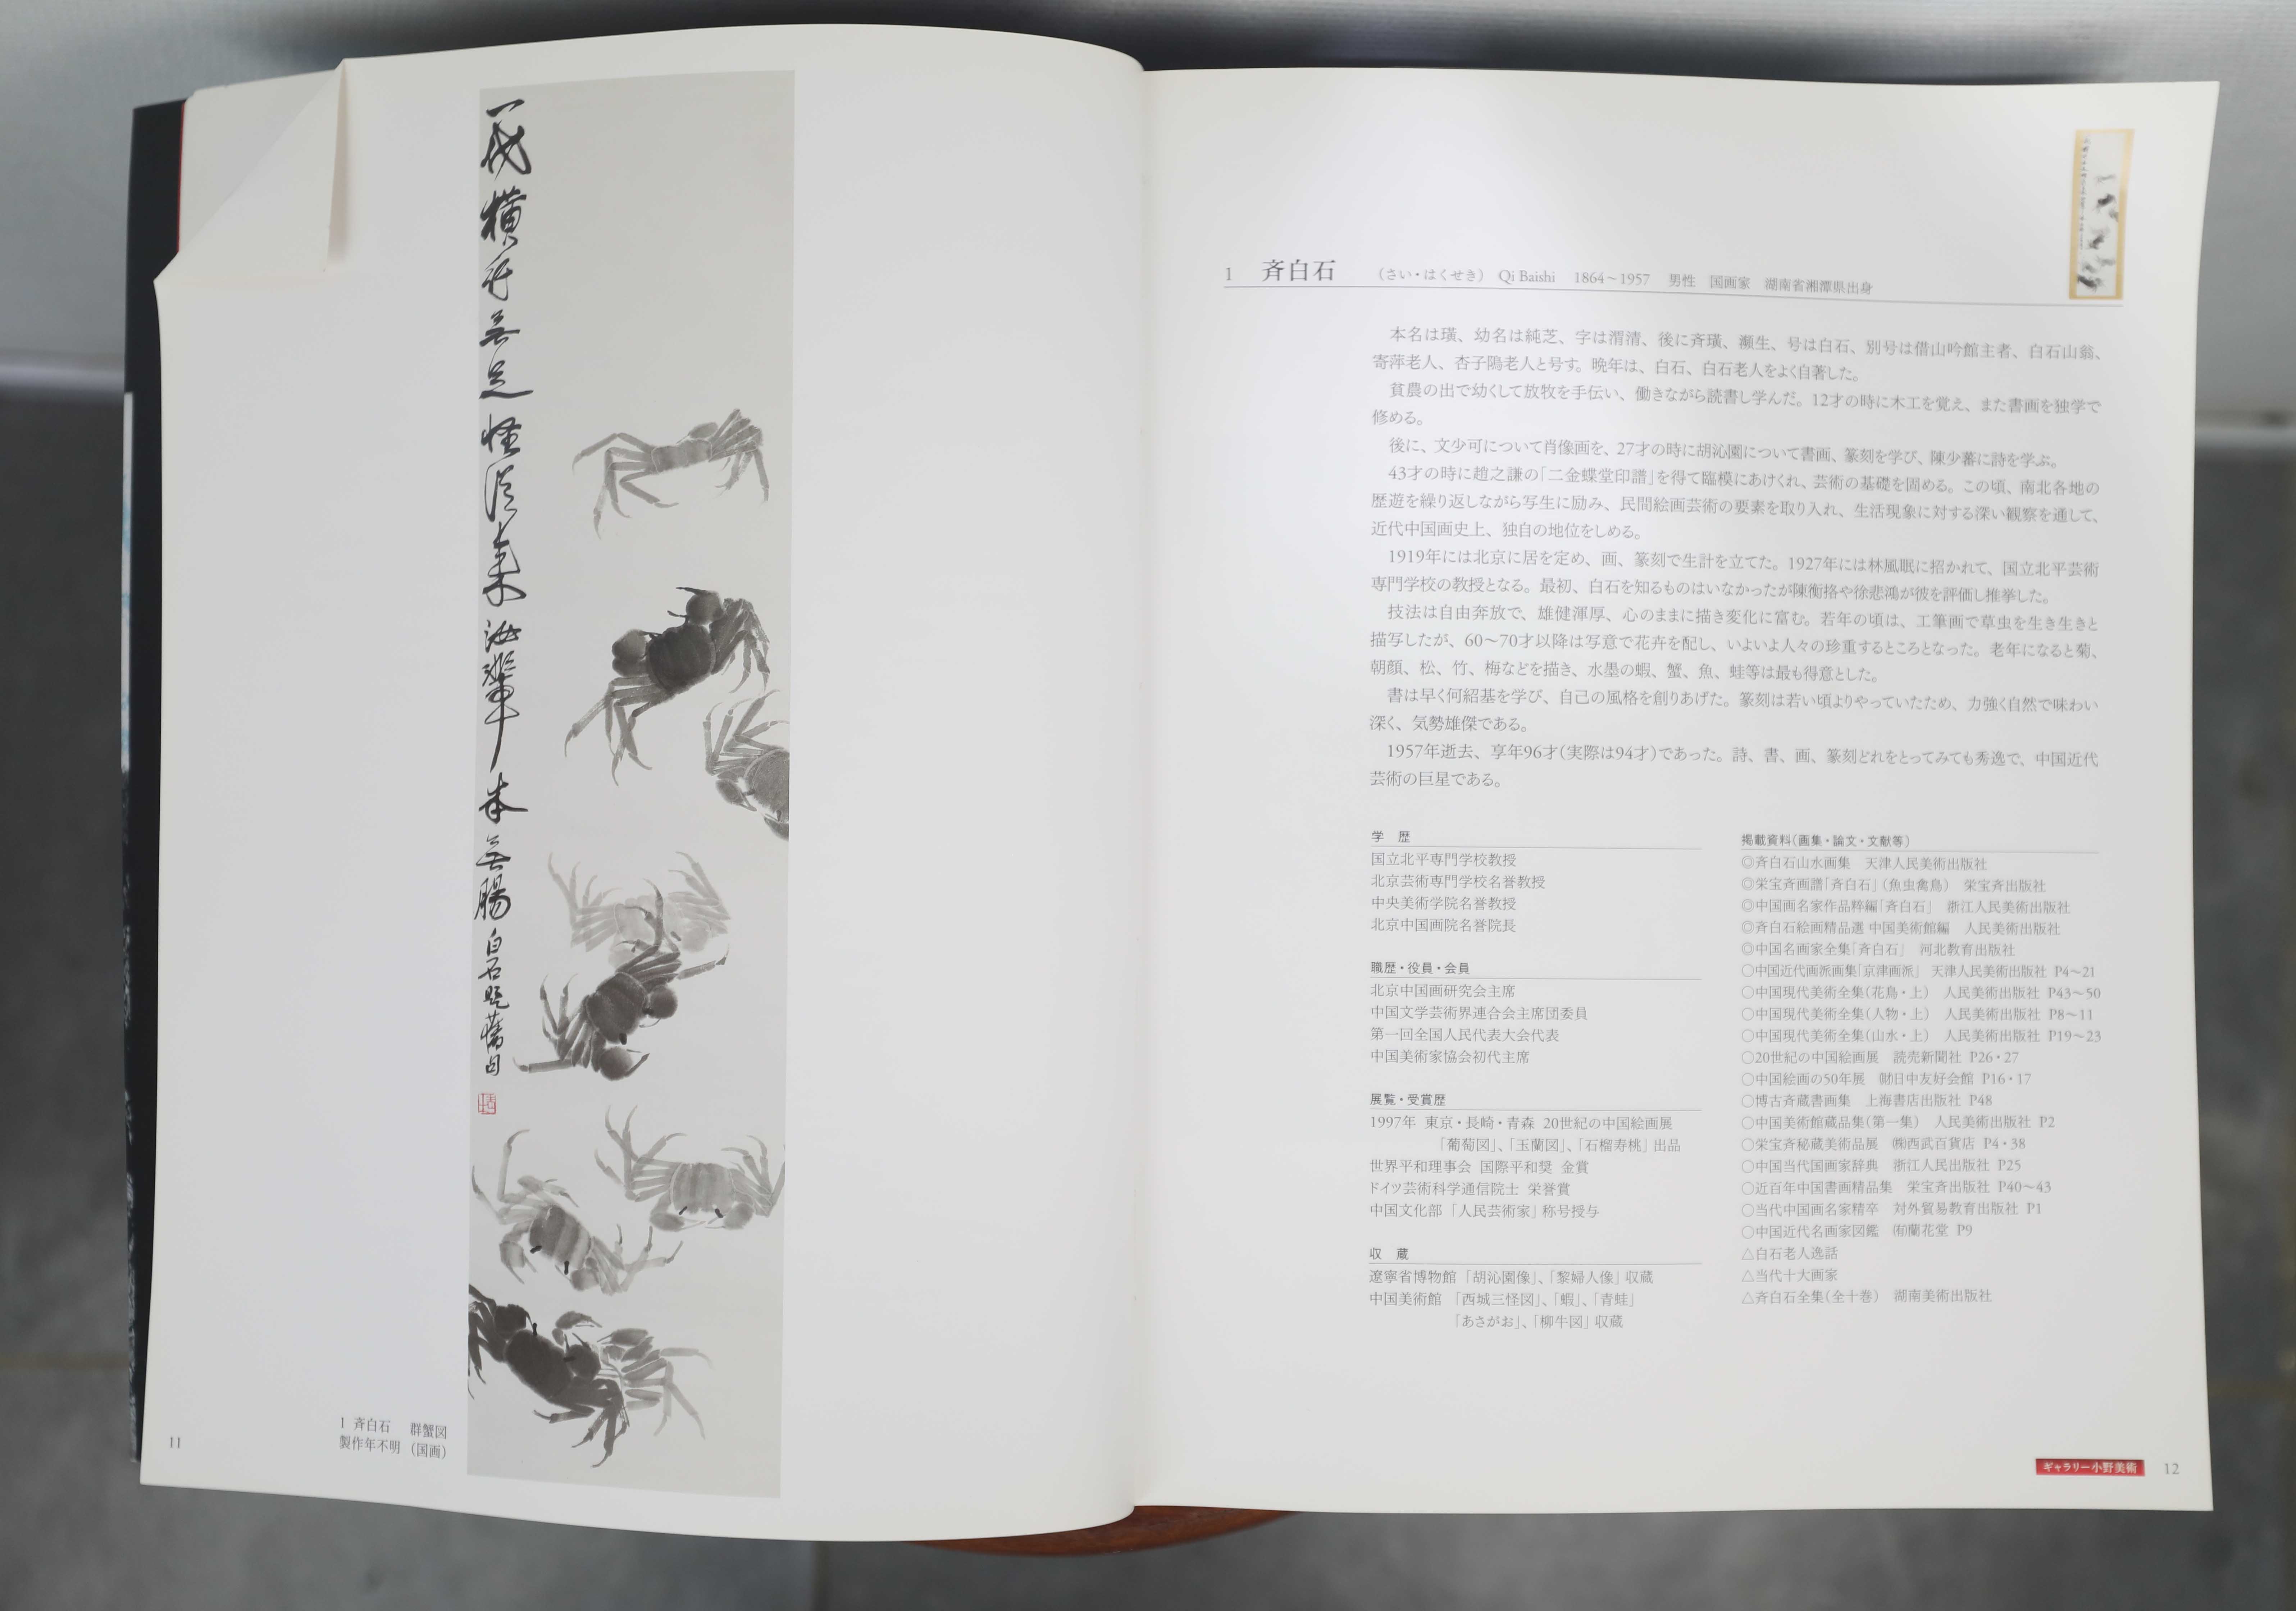 横行無足怪從來汝輩本無腸 白石題舊句
1 斉白石 群蟹図
製作年不明（国画）
11
1 斉白石 （さい・はくせき） Qi Baishi 1864～1957 男性 国画家 湖南省湘潭県出身
本名は璜、幼名は純芝、字は渭清、後に斉璜、瀕生、号は白石、別号は借山吟館主者、白石山翁、
寄萍老人、杏子隝老人と号す。晩年は、白石、白石老人をよく自著した。
貧農の出で幼くして放牧を手伝い、働きながら読書し学んだ。12才の時に木工を覚え、また書画を独学で
修める。
後に、文少可について肖像画を、27才の時に胡沁園について書画、篆刻を学び、陳少蕃に詩を学ぶ。
43才の時に趙之謙の「二金蝶堂印譜」を得て臨模にあけくれ、芸術の基礎を固める。この頃、南北各地の
歴遊を繰り返しながら写生に励み、民間絵画芸術の要素を取り入れ、生活現象に対する深い観察を通して、
近代中国画史上、独自の地位をしめる。
1919年には北京に居を定め、画、篆刻で生計を立てた。1927年には林風眠に招かれて、国立北平芸術
専門学校の教授となる。最初、白石を知るものはいなかったが陳衡挌や徐悲鴻が彼を評価し推挙した。
技法は自由奔放で、雄健渾厚、心のままに描き変化に富む。若年の頃は、工筆画で草虫を生き生きと
描写したが、60～70才以降は写意で花卉を配し、いよいよ人々の珍重するところとなった。老年になると菊、
朝顔、松、竹、梅などを描き、水墨の蝦、蟹、魚、蛙等は最も得意とした。
書は早く何紹基を学び、自己の風格を創りあげた。篆刻は若い頃よりやっていたため、力強く自然で味わい
深く、気勢雄傑である。
1957年逝去、享年96才（実際は94才）であった。詩、書、画、篆刻どれをとってみても秀逸で、中国近代
芸術の巨星である。
学 歴
国立北平専門学校教授
北京芸術専門学校名誉教授
中央美術学院名誉教授
北京中国画院名誉院長
職歴・役員・会員
北京中国画研究会主席
中国文学芸術界連合会主席団委員
第一回全国人民代表大会代表
中国美術家協会初代主席
展覧・受賞歴
1997年 東京・長崎・青森 20世紀の中国絵画展
「葡萄図」、「玉蘭図」、「石榴寿桃」出品
世界平和理事会 国際平和奨 金賞
ドイツ芸術科学通信院士 栄誉賞
中国文化部「人民芸術家」称号授与
収 蔵
遼寧省博物館「胡沁園像」、「黎婦人像」収蔵
中国美術館 「西城三怪図」、「蝦」、「青蛙」
「あさがお」、「柳牛図」収蔵
掲載資料（画集・論文・文献等）
◎斉白石山水画集 天津人民美術出版社
◎栄宝斉画譜「斉白石」（魚虫禽鳥） 栄宝斉出版社
◎中国画名家作品粋編「斉白石」 浙江人民美術出版社
◎斉白石絵画精品選 中国美術館編 人民美術出版社
◎中国名画家全集「斉白石」 河北教育出版社
○中国近代画派画集「京津画派」 天津人民美術出版社 P4～21
○中国現代美術全集（花鳥・上） 人民美術出版社 P43～50
○中国現代美術全集（人物・上） 人民美術出版社 P8～11
○中国現代美術全集（山水・上） 人民美術出版社 P19～23
○20世紀の中国絵画展 読売新聞社 P26・27
○中国絵画の50年展 ㈶日中友好会館 P16・17
○博古斉蔵書画集 上海書店出版社 P48
○中国美術館蔵品集（第一集） 人民美術出版社 P2
○栄宝斉秘蔵美術品展 ㈱西武百貨店 P4・38
○中国当代国画家辞典 浙江人民出版社 P25
○近百年中国書画精品集 栄宝斉出版社 P40～43
○当代中国画名家精卒 対外貿易教育出版社 P1
○中国近代名画家図鑑 ㈲蘭花堂 P9
△白石老人逸話
△当代十大画家
△斉白石全集（全十巻） 湖南美術出版社
ギャラリー小野美術 12